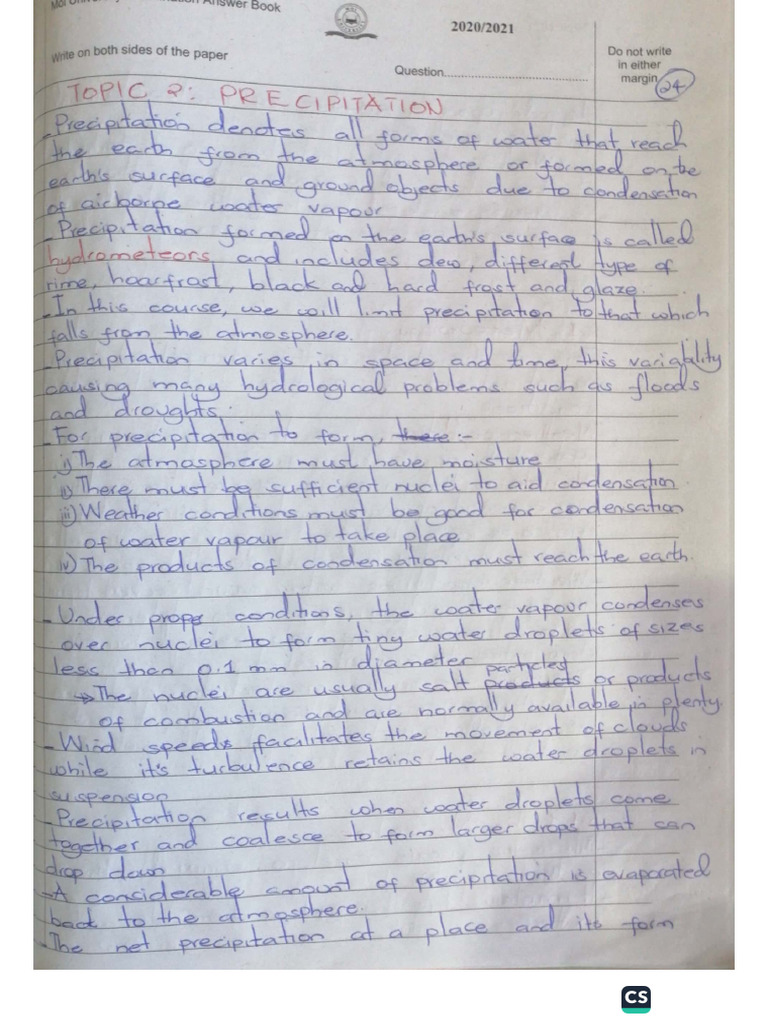 Answer Book
2020/2021
Write on both sides of the paper
Question
Do not write
in either
margin
24
TOPIC 2: PRECIPITATION
- Precipitation denotes all forms of water that reach
the earth from the atmosphere or formed on the
earth's surface and ground objects due to condensation
of airborne water vapour
- Precipitation formed on the earth's surface is called
hydrometeors and includes dew, different type of
rime, hoarfrost, black and hard frost and glaze.
- In this course, we will limit precipitation to that which
falls from the atmosphere.
- Precipitation varies in space and time, this variability
causing many hydrological problems such as floods
and droughts.
- For precipitation to form, there:-
i) The atmosphere must have moisture
ii) There must be sufficient nuclei to aid condensation
iii) Weather conditions must be good for condensation
of water vapour to take place
iv) The products of condensation must reach the earth.
- Under proper conditions, the water vapour condenses
over nuclei to form tiny water droplets of sizes
less than 0.1 mm in diameter
particles
→ The nuclei are usually salt products or products
of combustion and are normally available in plenty.
- Wind speeds facilitates the movement of clouds
while it's turbulence retains the water droplets in
suspension
- Precipitation results when water droplets come
together and coalesce to form larger drops that can
drop down
- A considerable amount of precipitation is evaporated
back to the atmosphere.
- The net precipitation at a place and its form
CS